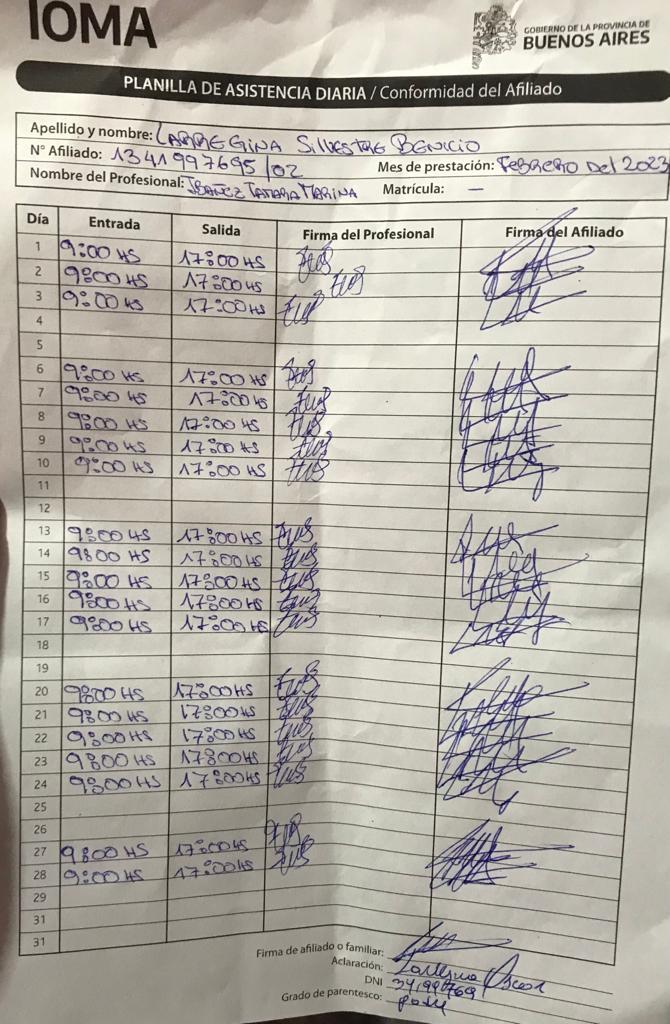 IOMA
GOBIERNO DE LA PROVINCIA DE
BUENOS AIRES
PLANILLA DE ASISTENCIA DIARIA / Conformidad del Afiliado
Apellido y nombre: LARREGINA SILVESTRE BENICIO
N° Afiliado: 1341997695/02 Mes de prestación: FEBRERO DEL 2023
Nombre del Profesional: IBAÑEZ TAMARA MARINA Matrícula: —
Día Entrada Salida Firma del Profesional Firma del Afiliado
1 9:00 HS 17:00 HS
2 9:00 HS 17:00 HS
3 9:00 HS 17:00 HS
4
5
6 9:00 HS 17:00 HS
7 9:00 HS 17:00 HS
8 9:00 HS 17:00 HS
9 9:00 HS 17:00 HS
10 9:00 HS 17:00 HS
11
12
13 9:00 HS 17:00 HS
14 9:00 HS 17:00 HS
15 9:00 HS 17:00 HS
16 9:00 HS 17:00 HS
17 9:00 HS 17:00 HS
18
19
20 9:00 HS 17:00 HS
21 9:00 HS 17:00 HS
22 9:00 HS 17:00 HS
23 9:00 HS 17:00 HS
24 9:00 HS 17:00 HS
25
26
27 9:00 HS 17:00 HS
28 9:00 HS 17:00 HS
29
31
31
Firma de afiliado o familiar:
Aclaración: Larregina Oscar
DNI 34199769
Grado de parentesco: